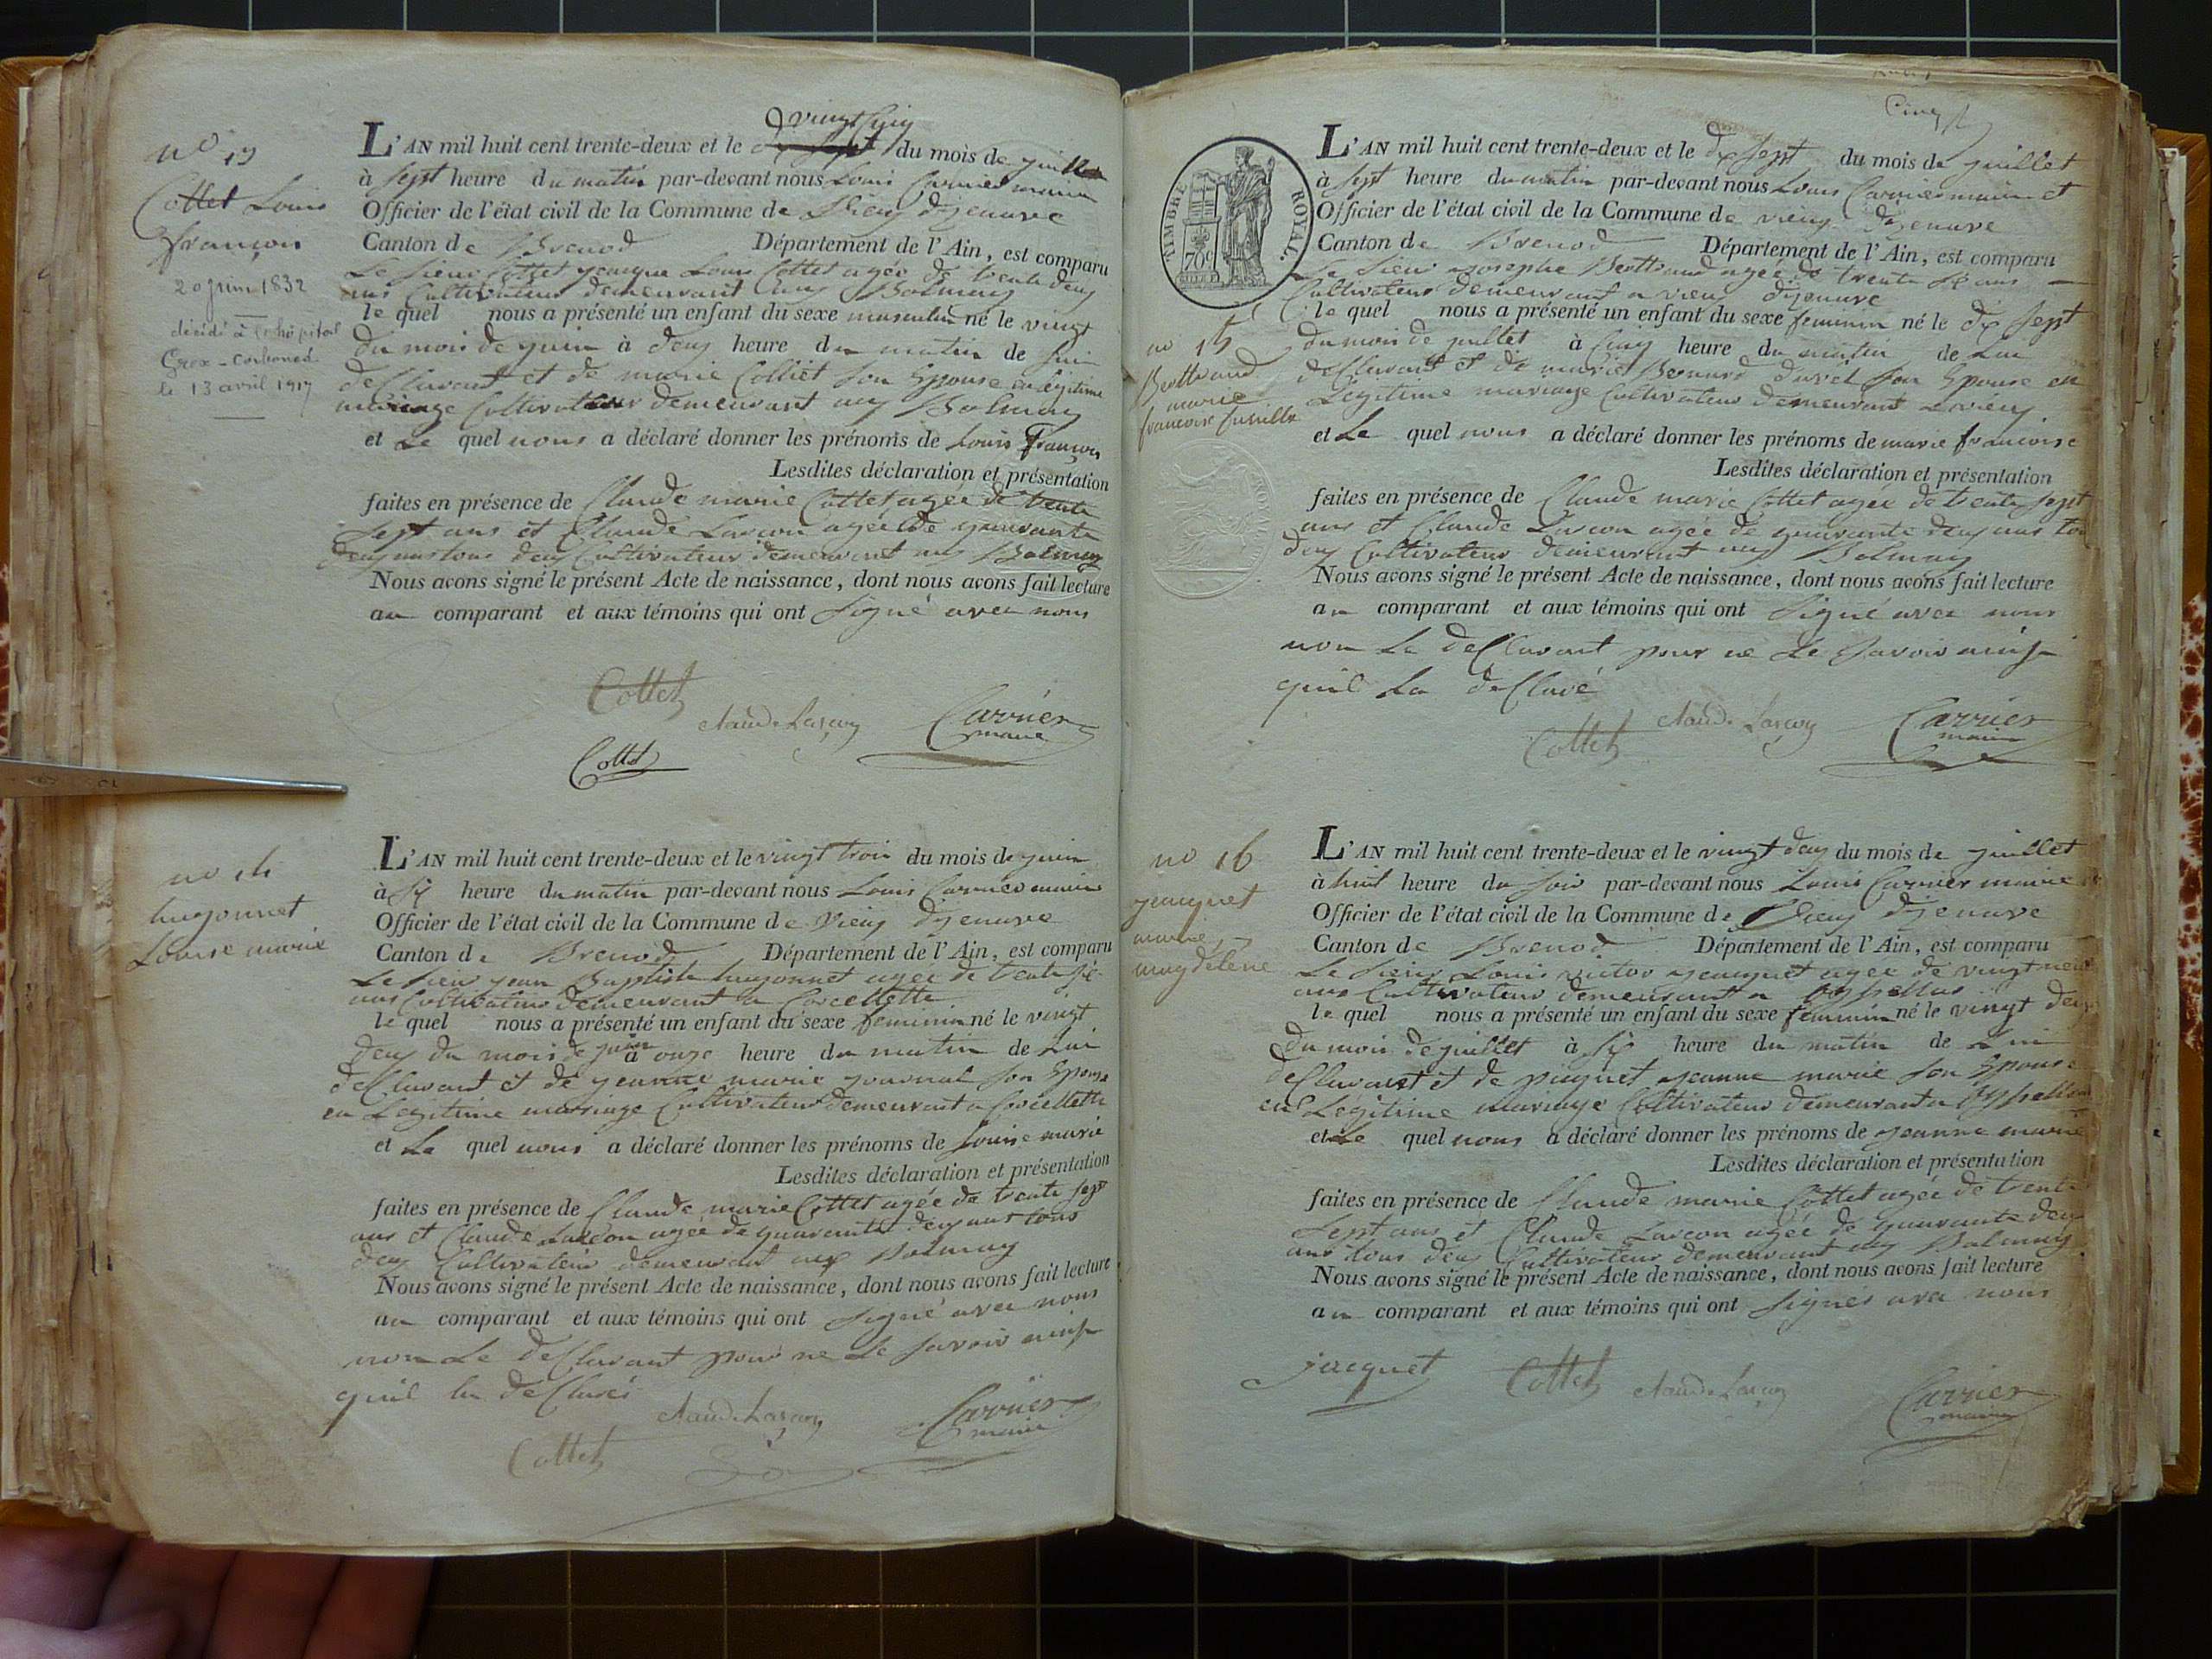 no 13
Cottet Louis
françois
20 juin 1832
décédé à l'hôpital
le 13 avril 1917
vingt Cinq
L'AN mil huit cent trente-deux et le du mois de juin
à Sept heure du matin par-devant nous Louis Carrier maire
Officier de l'état civil de la Commune de Vieux dizenave
Canton de Brenod Département de l'Ain, est comparu
Le Sieur Cottet Louis Cottet agée de trente deux
ans Cultivateur demeurant aux Balmay
le quel nous a présenté un enfant du sexe masculin né le vingt
du mois de juin à deux heure du matin de Lui
declarant et de marie Colliet son Epouse en legitime
mariage Cultivateur demeurant aux Balmay
et Le quel nous a déclaré donner les prénoms de Louis François
Lesdites déclaration et présentation
faites en présence de Claude marie Cottet agée de trente
sept ans et Claude Larcon agée de quarante
deux ans tous deux Cultivateur demeurant aux Balmay
Nous avons signé le présent Acte de naissance, dont nous avons fait lecture
au comparant et aux témoins qui ont Signé avec nous
Cottet
Claude Larçon Carrier
maire
Cottet
no 14
hugonnet
Louise marie
L'AN mil huit cent trente-deux et le vingt trois du mois de juin
à Six heure du matin par-devant nous Louis Carrier maire
Officier de l'état civil de la Commune de Vieux dizenave
Canton de Brenod Département de l'Ain, est comparu
Le Sieur jean Baptiste hugonnet agée de trente six
ans Cultivateur demeurant a Corcellette
le quel nous a présenté un enfant du sexe feminin né le vingt
deux du mois de juin à onze heure du matin de Lui
declarant et de jeanne marie son Epouse
en Legitime mariage Cultivateur demeurant a Corcellette
et Le quel nous a déclaré donner les prénoms de Louise marie
Lesdites déclaration et présentation
faites en présence de Claude marie Cottet agée de trente sept
ans et Claude Larcon agée de quarante deux ans tous
deux Cultivateur demeurant aux Balmay
Nous avons signé le présent Acte de naissance, dont nous avons fait lecture
au comparant et aux témoins qui ont Signé avec nous
non Le declarant pour ne Le savoir ainsi
quil la declaré
Claude Larçon Carrier
maire
Cottet
Cinq
TIMBRE ROYAL.
70c
no 15
Berttrand
marie
francoise
L'AN mil huit cent trente-deux et le dix Sept du mois de juillet
à Sept heure du matin par-devant nous Louis Carrier maire et
Officier de l'état civil de la Commune de vieux dizenave
Canton de Brenod Département de l'Ain, est comparu
Le Sieur Josephe Berttrand agée de trente ans
Cultivateur demeurant a vieux dizenave
le quel nous a présenté un enfant du sexe feminin né le dix Sept
du mois de juillet à Cinq heure du matin de Lui
declarant et de marie son Epouse en
Legitime mariage Cultivateur demeurant a vieux
et Le quel nous a déclaré donner les prénoms de marie francoise
Lesdites déclaration et présentation
faites en présence de Claude marie Cottet agée de trente Sept
ans et Claude Larcon agée de quarante deux ans tou
deux Cultivateur demeurant aux Balmay
Nous avons signé le présent Acte de naissance, dont nous avons fait lecture
au comparant et aux témoins qui ont Signé avec nous
non Le declarant pour ne Le Savoir ainsi
quil La declaré
Cottet Claude Larçon Carrier
maire
no 16
jacquet
marie
magdelene
L'AN mil huit cent trente-deux et le vingt deux du mois de juillet
à huit heure du soir par-devant nous Louis Carrier maire
Officier de l'état civil de la Commune de Vieux dizenave
Canton de Brenod Département de l'Ain, est comparu
Le Sieur Louis victor jacquet agée de vingt neuf
ans Cultivateur demeurant a
le quel nous a présenté un enfant du sexe feminin né le vingt deux
du mois de juillet à Six heure du matin de Lui
declarant et de jeanne marie son Epouse
en Légitime mariage Cultivateur demeurant a
et Le quel nous a déclaré donner les prénoms de jeanne marie
Lesdites déclaration et présentation
faites en présence de Claude marie Cottet agée de trente
Sept ans et Claude Larcon agée de quarante deux
ans tous deux Cultivateur demeurant aux Balmay
Nous avons signé le présent Acte de naissance, dont nous avons fait lecture
au comparant et aux témoins qui ont Signer avec nous
jacquet Cottet Claude Larçon Carrier
maire